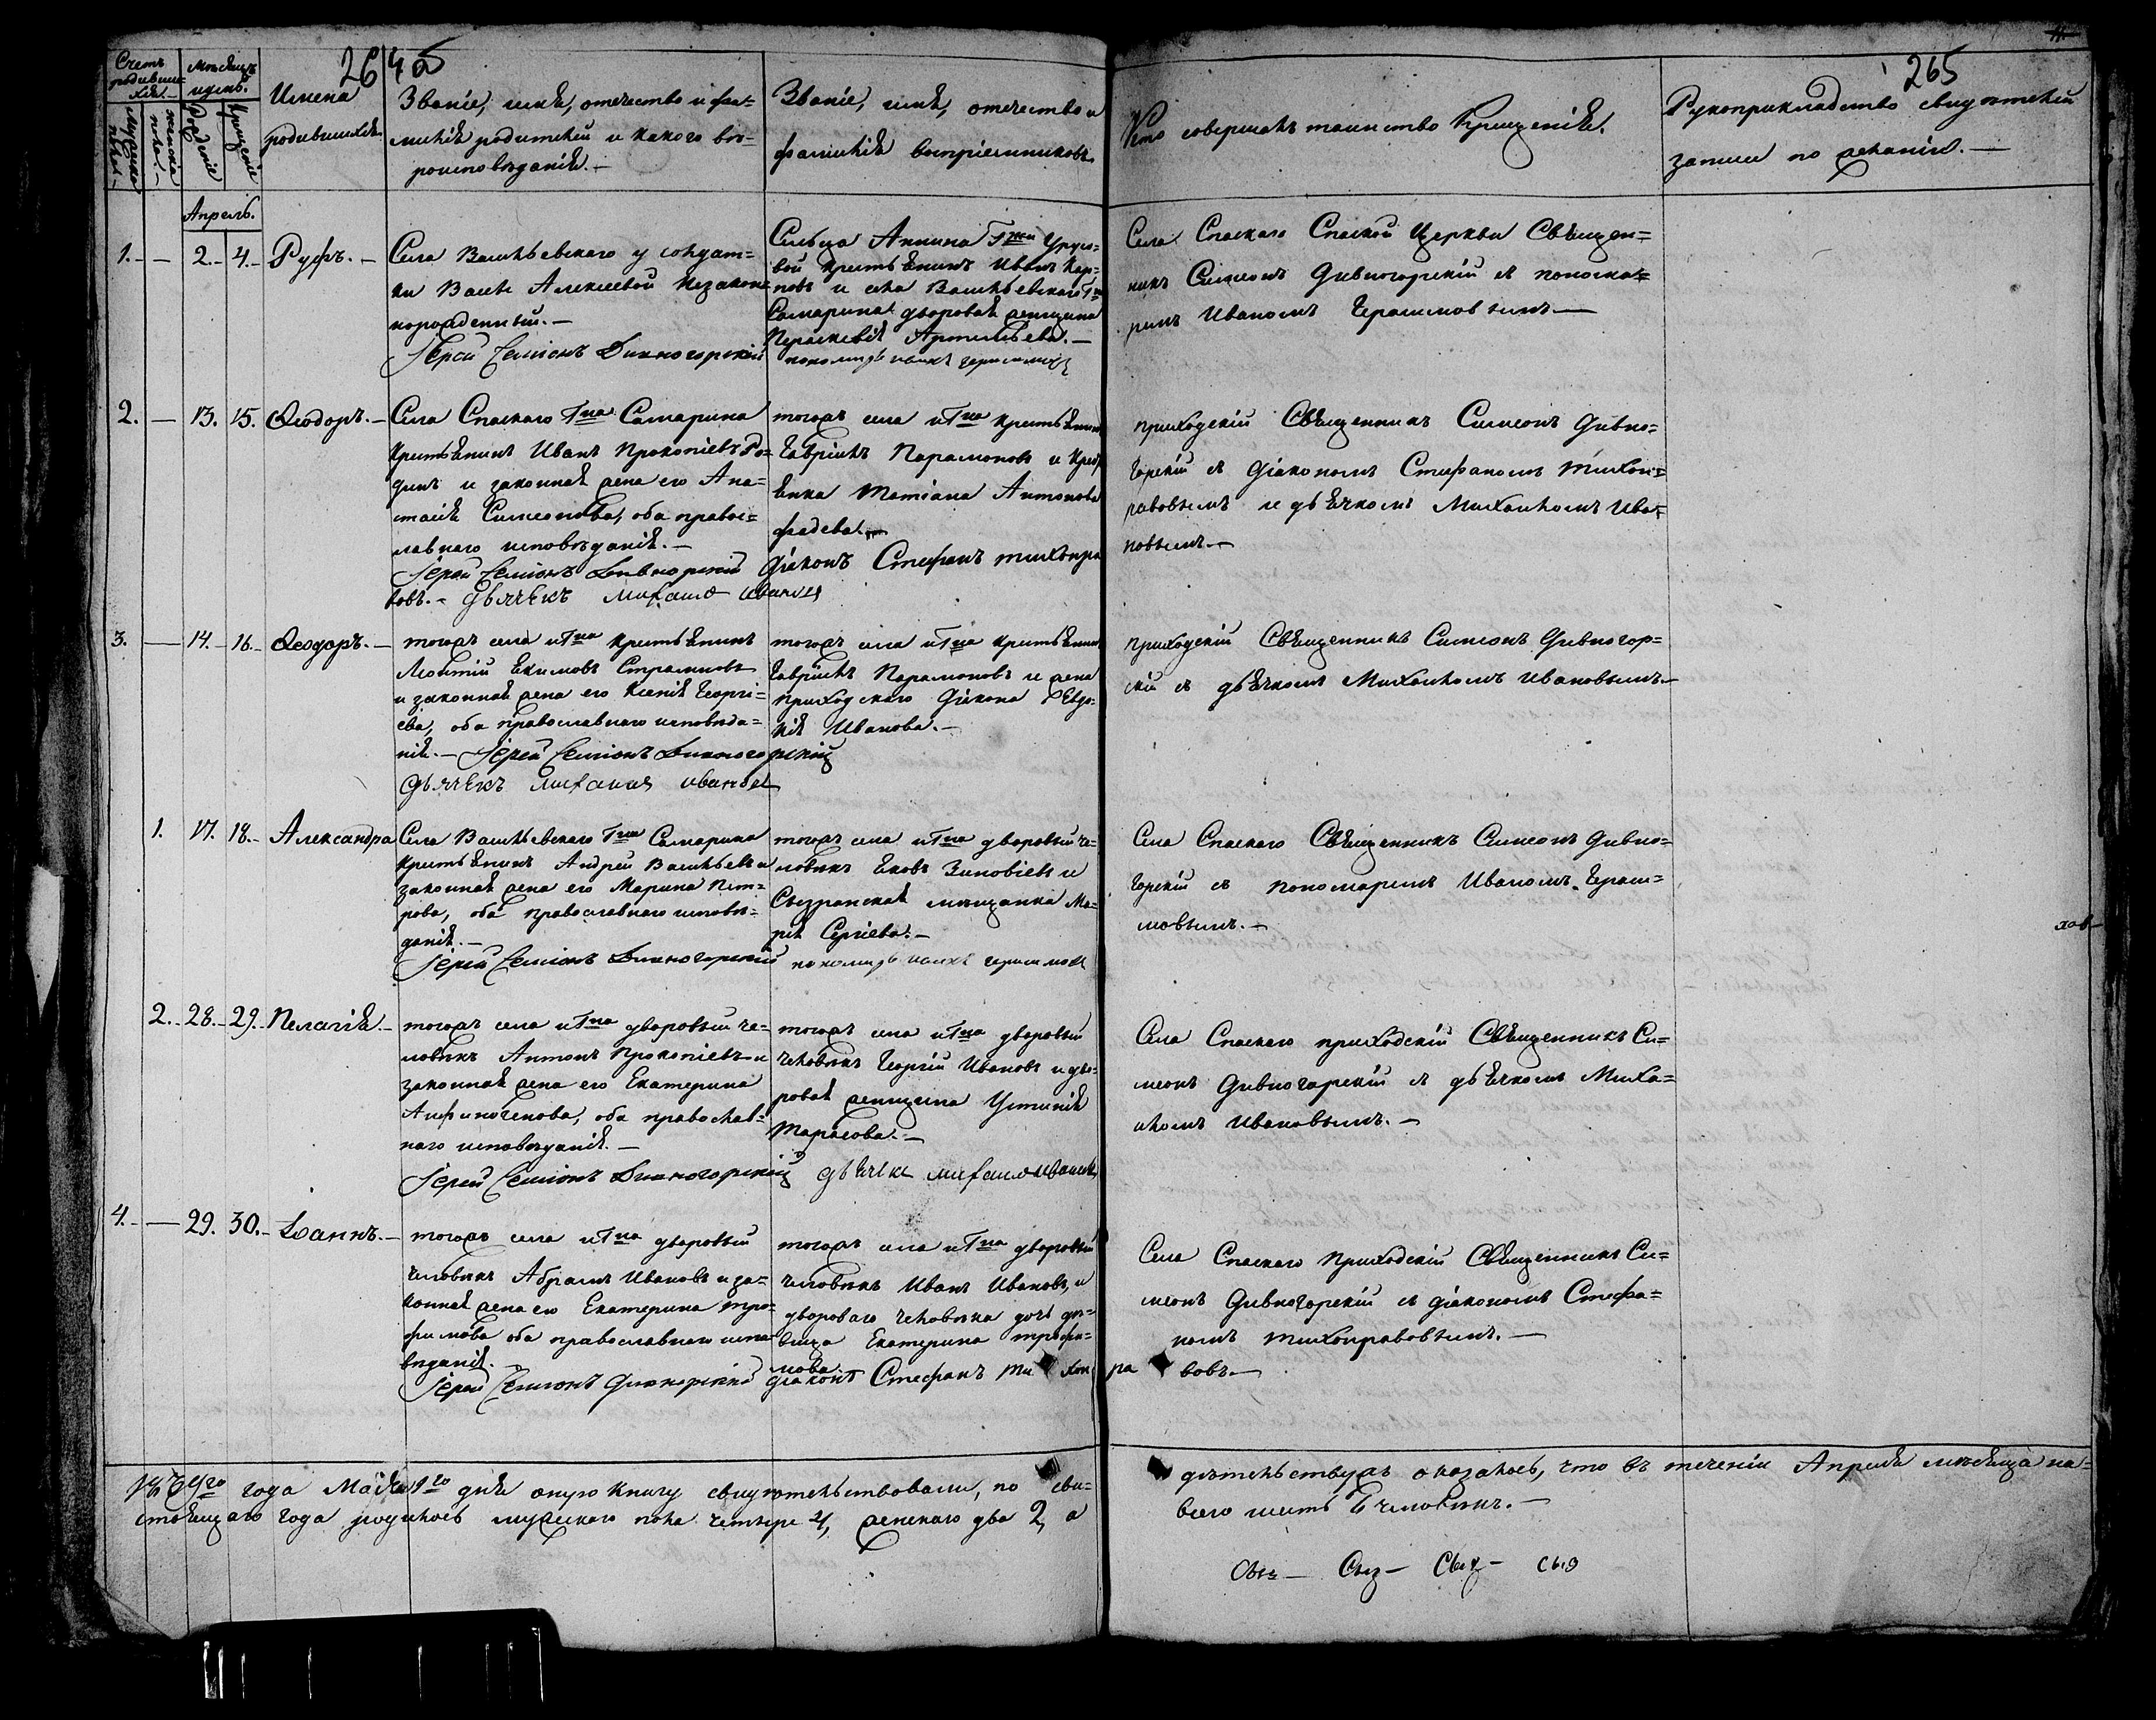 264 об
265
Счетъ
родивших-
ся.
Мѣсяцъ
и день.
мужеска
пола.
женска
пола.
Рожденія
Крещенія
Имена
родившихся
Званіе, имя, отечество и фа=
милія родителей и какого вѣ=
роисповѣданія. —
Званіе, имя, отечество и
фамилія воспріемниковъ
Кто совершалъ таинство Крещенія.
Рукоприкладство свидѣтелей
записи по желанію. —
Апрель.
1. — 2. 4. Руфъ. —
Села Васильевскаго у солдат=
ки Васы Алексѣевой незаконно
норожденный. —
Іерей Семіонъ Дивногорскій
Сельца Аннина Гжи Урусо=
вой крестьянинъ Иванъ Кар=
повъ и села Васильевскаго Гна
Самарина дворовая женщина
Параскевія Артемьева. —
Села Спаскаго Спаской Церкви Священ=
никъ Симеонъ Дивногорскій съ понома=
ремъ Иваномъ Герасимовымъ —
2. — 13. 15. Ѳеодоръ. —
Села Спаскаго Гна Самарина
крестьянинъ Иванъ Прокопіевъ Ро=
динъ и законная жена его Ана=
стасія Симеонова, оба правос=
лавнаго исповѣданія. —
Іерей Семіонъ Дивногорскій
тогожъ села и Гна крестьянинъ
Гавріилъ Парамоновъ и крестья
янка Татіана Антонова
фадева. —
Діаконъ Стефанъ Тихонра
вовъ. — дьячекъ Михаило Ивановъ
приходскій Священникъ Симеонъ Дивно=
горскій съ Діакономъ Стефаномъ Тихон=
равовымъ и дьячкомъ Михаиломъ Ива=
новымъ. —
3. — 14. 16. Ѳеодоръ. —
тогожъ села и Гна крестьянинъ
Леонтій Екимовъ Страмновъ
и законная жена его Ксенія Георгі=
ева, оба православнаго исповѣда=
нія. — Іерей Семіонъ Дивногорскій
дьячекъ Михаила Ивановъ
тогожъ села и Гна крестьянинъ
Гавріилъ Парамоновъ и жена
приходскаго Діакона Евдо=
кія Иванова. —
приходскій Священникъ Симеонъ Дивногор=
скій съ дьячкомъ Михаиломъ Ивановымъ. —
1. 17. 18. Александра
Села Васильевскаго Гна Самарина
крестьянинъ Андрей Васильевъ и
законная жена его Марина Пет=
рова, оба православнаго исповѣ=
данія. —
Іерей Семіонъ Дивногорскій
тогожъ села и Гна дворовый че=
ловѣкъ Яковъ Зиновіевъ и
Сызранская мѣщанка Ма=
рія Сергіева. —
Села Спаскаго Священникъ Симеонъ Дивно=
горскій съ пономаремъ Иваномъ Гераси=
мовымъ. —
2. 28. 29. Пелагія. —
тогожъ села и Гна дворовый че=
ловѣкъ Антонъ Прокопіевъ и
законная жена его Екатерина
Анфиногенова, оба православ=
наго исповѣданія. —
Іерей Семіонъ Дивногорскій
тогожъ села и Гна дворовый
человѣкъ Георгій Ивановъ и дво=
ровая женщина Устинія
Тарасова. —
дьячекъ Михаило Ивановъ
Села Спаскаго приходскій Священникъ Си=
меонъ Дивногорскій съ дьячкомъ Миха=
иломъ Ивановымъ. —
4. — 29. 30. Іоаннъ. —
тогожъ села и Гна дворовый
человѣкъ Абрамъ Ивановъ и за=
конная жена его Екатерина Тро=
фимова оба православнаго испо
вѣданія.
Іерей Семіонъ Дивногорскій
тогожъ села и Гна дворовый
человѣкъ Иванъ Ивановъ, и
двороваго человѣка дочь дѣ=
вица Екатерина Трофи=
мова.
діаконъ Стефанъ Тихонравовъ —
Села Спаскаго Приходскій Священникъ Си=
меонъ Дивногорскій съ діакономъ Стефа=
номъ Тихонравовымъ. —
года Майя 1го дня оную книгу свидѣтельствовали, по сви=
дѣтельствужъ оказалось, что въ теченіи Апреля мѣсяца на=
стоящаго года родилось мужескаго пола четыре 4, женскаго два 2, а
всего шесть 6 человѣкъ. —